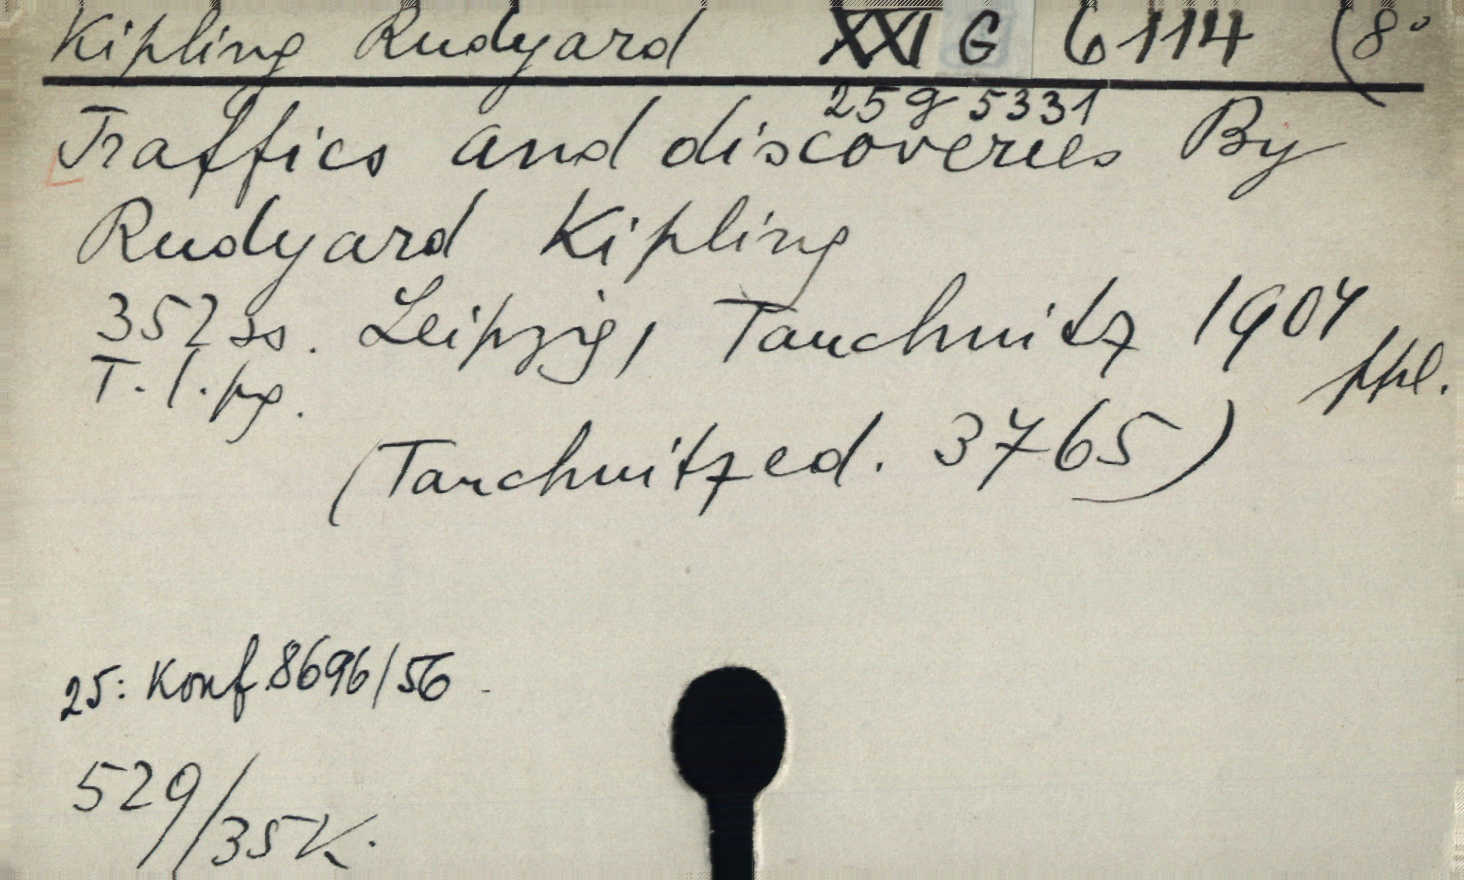 Kipling Rudyard XXI G 6114 (8°
25 g 5331
Traffics and discoveries By
Rudyard Kipling
352 ss. Leipzig, Tauchnitz 1904
T. l. pg. ppl.
(Tauchnitz ed. 3765)
25: Konf. 8696/56
529/35 K.